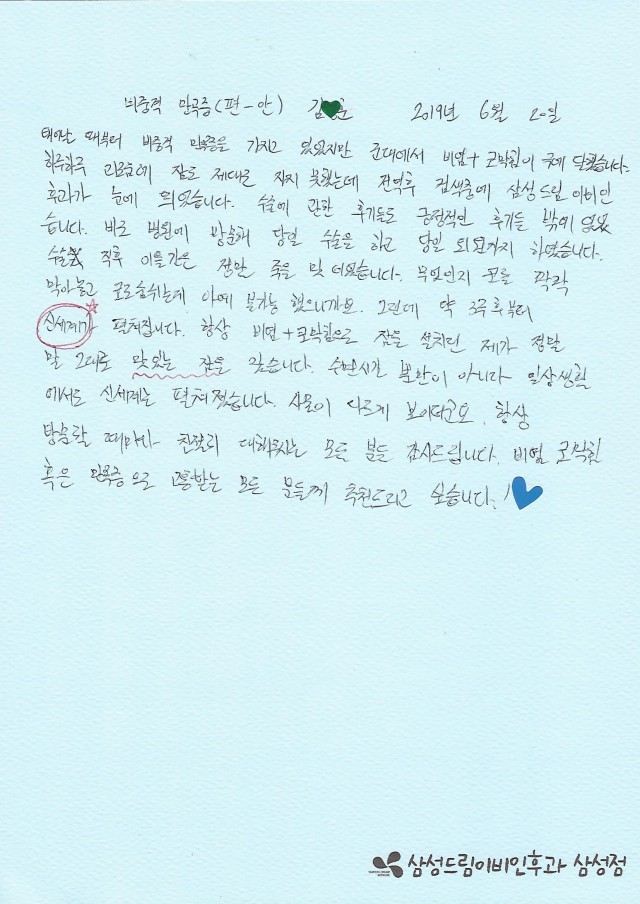 비중격 만곡증(편-안) 김 훈 2019년 6월 20일
태어날 때부터 비중격 만곡증을 가지고 있었지만 군대에서 비염+코막힘이 극에 달했습니다.
하루하루 괴로움에 잠도 제대로 자지 못했는데 전역후 검색중에 삼성드림 이비인
후과가 눈에 띄었습니다. 수술에 관한 후기들도 긍정적인 후기들 밖에 없었
습니다. 바로 병원에 방문해 당일 수술을 하고 당일 퇴원까지 하였습니다.
수술 직후 이틀간은 정말 죽을 맛 이었습니다. 무엇인지 모를 꽉꽉
막아놓고 코로숨쉬는데 아예 불가능 했으니까요. 그런데 약 3주 후부터
신세계가 펼쳐집니다. 항상 비염+코막힘으로 잠을 설치던 제가 정말
말 그대로 맛있는 잠을 잤습니다. 수면시간 뿐만이 아니라 일상생활
에서도 신세계는 펼쳐졌습니다. 사물이 다르게 보이더군요. 항상
방문할 때마다 친절히 대해주시는 모든 분들 감사드립니다. 비염, 코막힘
혹은 만곡증으로 고통받는 모든 분들께 추천드리고 싶습니다!
삼성드림이비인후과 삼성점